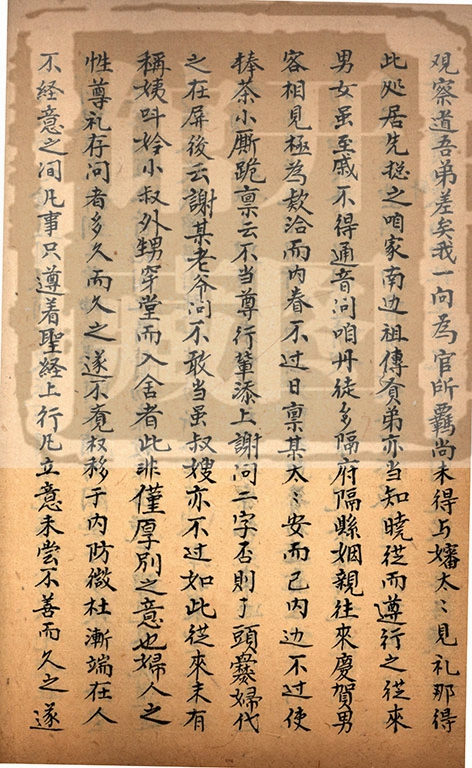 观察道吾弟差矣我一向為官所覊尚未得与嬸太〻見礼那得
此处居先捴之咱家南边祖傳賁弟亦当知曉從而遵行之從來
男女虽至戚不得通音问咱丹徒多隔府隔縣姻親往來慶賀男
容相見極為欵洽而内眷不过日禀某太〻安而已内边不过使
棒茶小厮跪禀云不当尊行輩添上謝问二字否則了頭爨婦代
之在屏後云謝某老爷问不敢当虽叔嫂亦不过如此從來未有
稱姨叫妗小叔外甥穿堂而入舍者此非僅厚別之意也婦人之
性尊礼存问者多久而久之遂不覚权移于内防微杜漸端在人
不経意之间凡事只遵着聖経上行凡立意未尝不善而久之遂